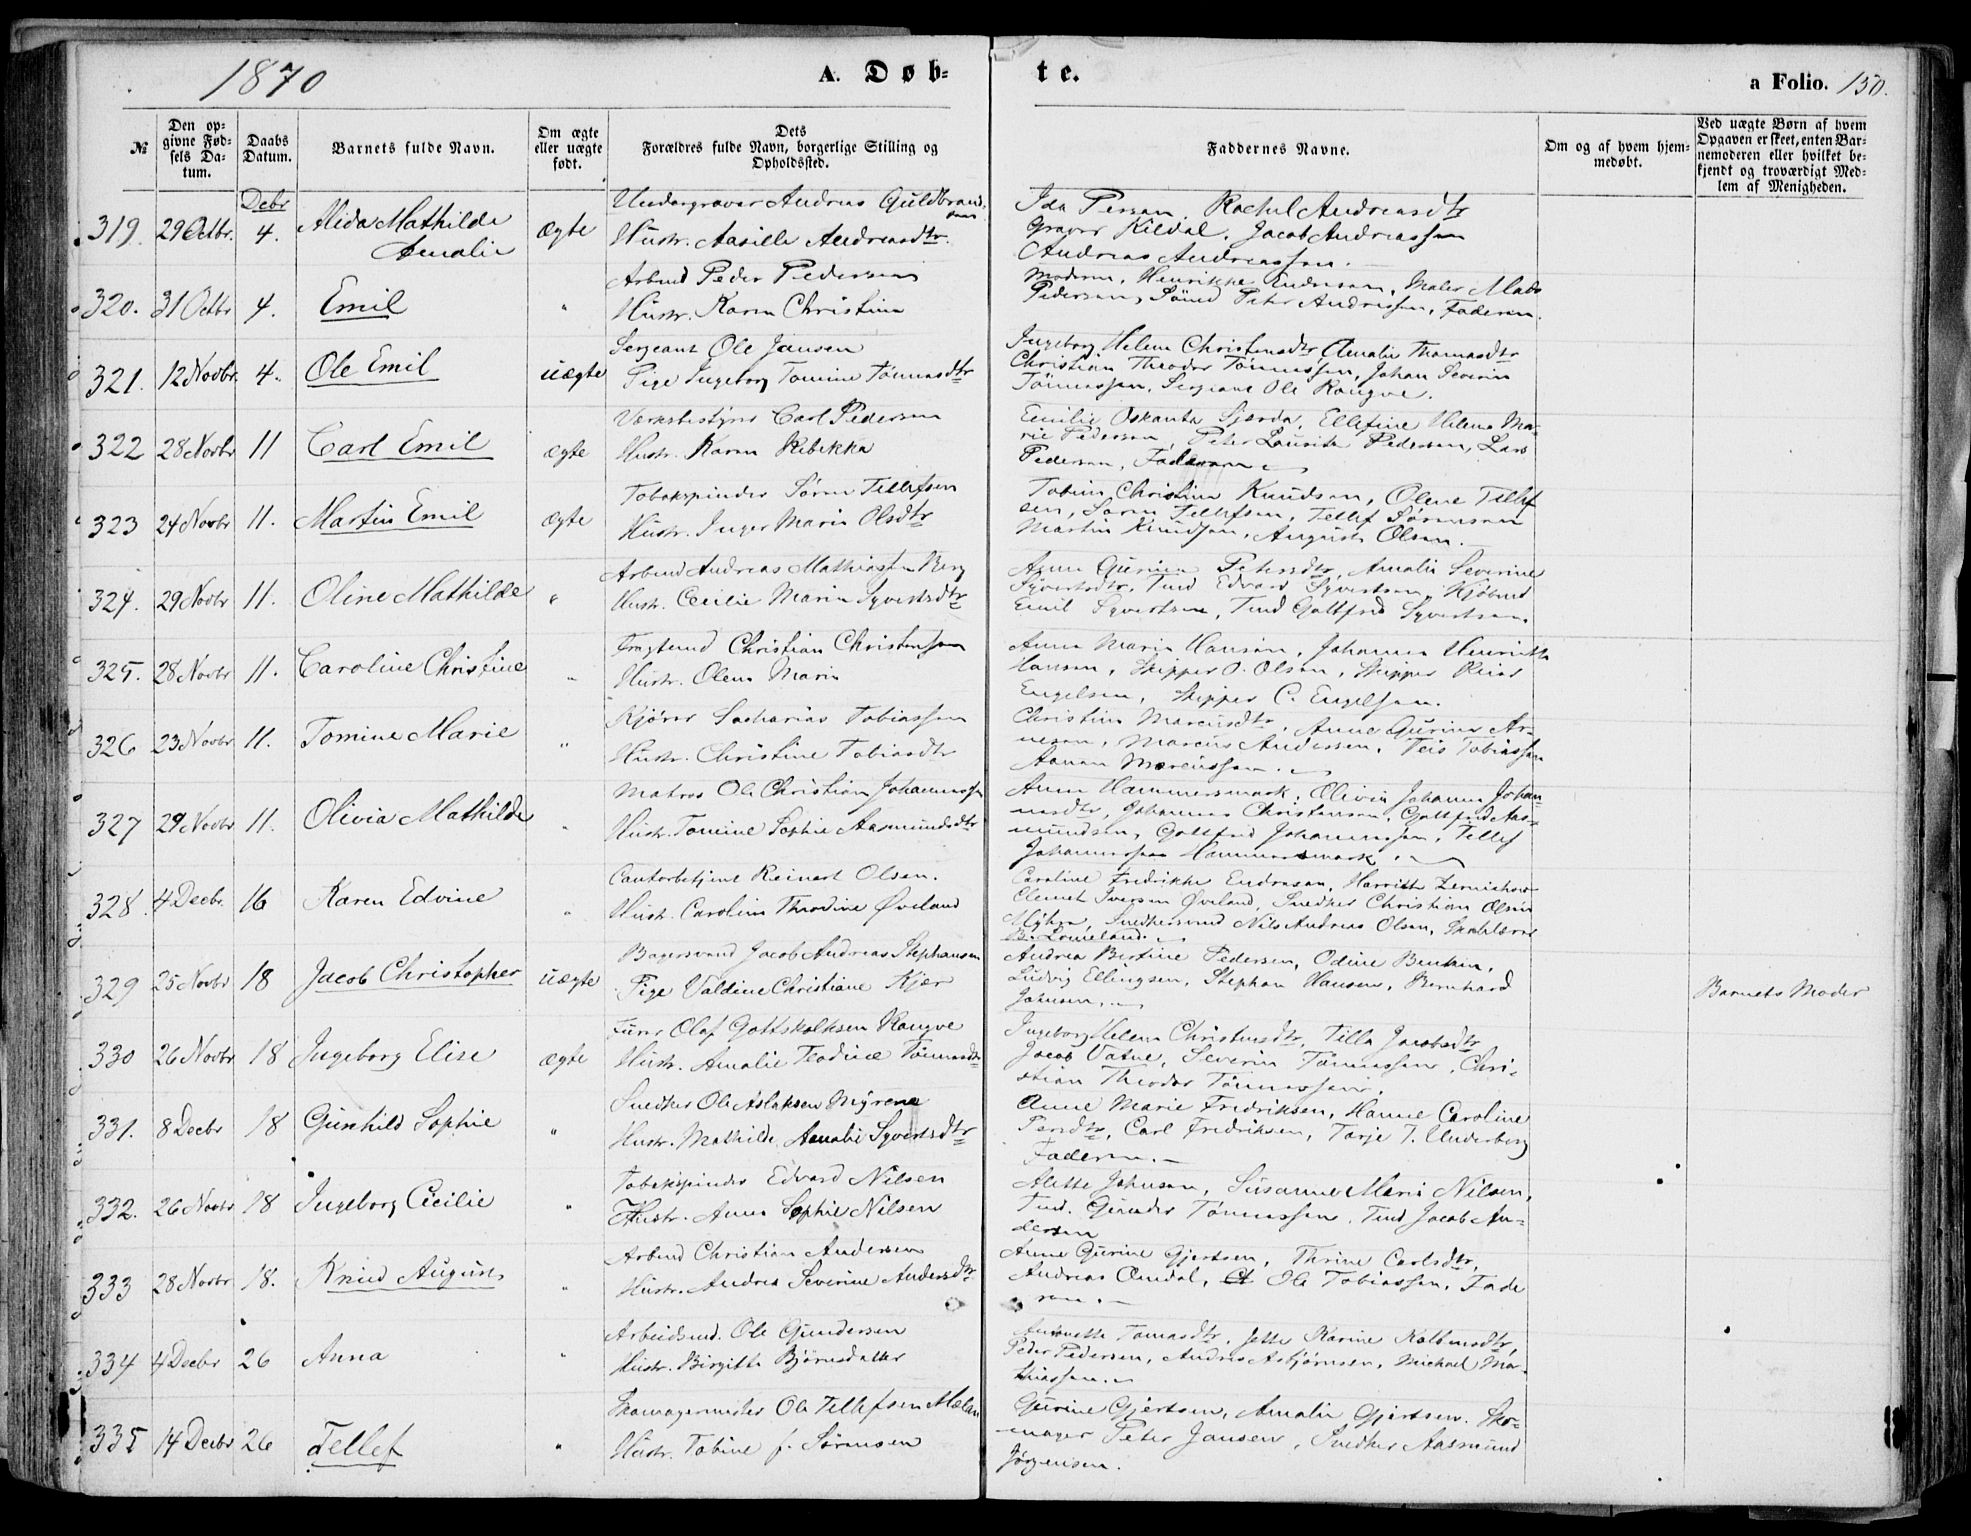 1870
A. Døb-
te.
a Folio. 150.
№
Den opgivne Fødsels Datum.
Daabs Datum.
Barnets fulde Navn.
Om ægte eller uægte født.
Dets Forældres fulde Navn, borgerlige Stilling og Opholdssted.
Faddernes Navne.
Om og af hvem hjemmedøbt.
Ved uægte Børn af hvem Opgaven er skeet, enten Barnemoderen eller hvilket bekjendt og troværdigt Medlem af Menigheden.
Decbr
319. 29 Octbr. 4. Alida Mathilde Amalie ægte
Undergraver Andreas Guldbrandsen
Hustr. Aasille Andreasdtr.
Ida Persen, Rachel Andreasdtr
Graver Kildal, Jacob Andreassen
Andreas Andreassen.
320. 31 Octbr 4. Emil "
Arbmd Peder Pedersen
Hustr. Karen Christine
Moderen, Henrikke Andersen, Maler Mads
Pedersen, Sømd Peter Andersen, Faderen.
321. 12 Novbr. 4. Ole Emil uægte
Sergeant Ole Jansen
Pige Ingeborg Tomine Tønnesdtr
Ingeborg Helene Christensdtr, Amalie Thomasdtr
Christian Theodor Tønnessen, Johan Severin
Tønnessen, Sergeant Ole Rangve.
322 28 Novbr 11 Carl Emil ægte
Værksbestyrer Carl Pedersen
Hustr. Karen Rebekka
Emilie Oskanta Sjerda, Ellefine Helene Ma-
rie Pedersen, Peter Lauritz Pedersen, Lars
Pedersen, Faderen
323 24 Novbr 11. Martin Emil ægte
Tobakspinder Søren Tellefsen
Hustr. Inger Marie Olsdtr
Tobine Christine Knudsen, Olene Tellef
sen, Søren Tellefsen, Tellef Sørensen
Martin Knudsen, August Olsen.
324. 29 Novbr 11. Oline Mathilde "
Arbmd Andreas Mathiassen Berg
Hustr. Cecilie Marie Syvertsdtr
Anne Gurine Petersdtr, Amalie Severine
Syvertsdtr, Tmd Edvard Syvertsen, Kjøbmd
Emil Syvertsen, Tmd Gottfred Syvertsen.
325. 28 Novbr 11. Caroline Christine "
Fragtmd Christian Christensen
Hustr. Olene Marie
Anne Marie Hansen, Johanne Henrikke
Hansen, Skipper O. Olsen, Skipper Reier
Engelsen, Skipper C. Engelsen.
326 23 Novbr 11. Tomine Marie "
Kjører Sacharias Tobiassen
Hustr. Christine Tobiasdtr
Christine Marcusdtr, Anne Gurine Ar-
nesen, Marcus Andersen, Teis Tobiassen
Aanen Marcussen.
327 29 Novbr 11. Olivia Mathilde "
Matros Ole Christian Johannessen
Hustr. Tomine Sophie Aasmundsdtr
Anne Hammersmark, Olivia Johanne Johan-
nesdtr, Johannes Christensen, Gottfred Aas-
mundsen, Gottfred Johannessen, Tellef
Johannessen Hammersmark.
328. 4 Decbr. 16 Karen Edvine "
Contorbetjent Reinert Olsen.
Hustr. Caroline Theodine Øveland
Caroline Fredrikke Endresen, Harriette
Clemet Iversen Øveland, Snedker Christian Olsen
Myhre, Snedkersvend Nils Andreas Olsen, Skolelærer
B. Loineland.
329 25 Novbr 18 Jacob Christopher uægte
Bagersvend Jacob Andreas Stephansen
Pige Valdine Christiane Kjær
Andrea Bertine Pedersen, Odine Bentsen,
Ludvig Ellingsen, Stephan Hansen, Bernhard
Johnsen.
Barnets Moder
330 26 Novbr 18 Ingeborg Elise ægte
Furer Olaf Gottskalksen Rangve
Hustr. Amalie Teodine Tønnesdtr
Ingeborg Helene Christensdtr, Tilla Jacobsdtr
Jacob Vatne, Severin Tønnessen, Chri-
stian Theodor Tønnessen.
331. 8 Decbr 18 Gunhild Sophie "
Snedker Ole Aslaksen Myrene
Hustr. Mathilde Amalie Syvertsdtr
Anne Marie Fredriksen, Hanne Caroline
Persdtr, Carl Fredriksen, Tarje T. Underberg
Faderen.
332. 26 Novbr 18 Ingeborg Cecilie "
Tobakspinder Edvard Nilsen
Hustr. Anne Sophie Nilsen
Alette Johnsen, Susanne Marie Nilsen,
Tmd. Gunder Tønnessen, Tmd Jacob An-
dersen
333 28 Novbr 18. Knud August "
Arbmd Christian Andersen
Hustr. Andrea Severine Andersdtr
Anne Gurine Gjertsen, Thrine Carlsdtr,
Andreas Omdal, Ole Tobiassen, Fade
ren.
334 4 Decbr 26 Anna "
Arbeidsmd. Ole Gundersen
Hustr. Birgitte Bjørnsdatter
Antonette Tomasdtr, Jette Karine Kolbensdtr,
Peder Pedersen, Andreas Asbjørnsen, Michael Ma-
thiassen.
335 14 Decbr 26 Tellef "
Skomagermester Ole Tellefsen Mælan
Hustr. Tobine f. Sørensen
Gurine Gjertsen, Amalie Gjertsen, Sko-
mager Peter Jansen, Snedker Aasmund
Jørgensen.